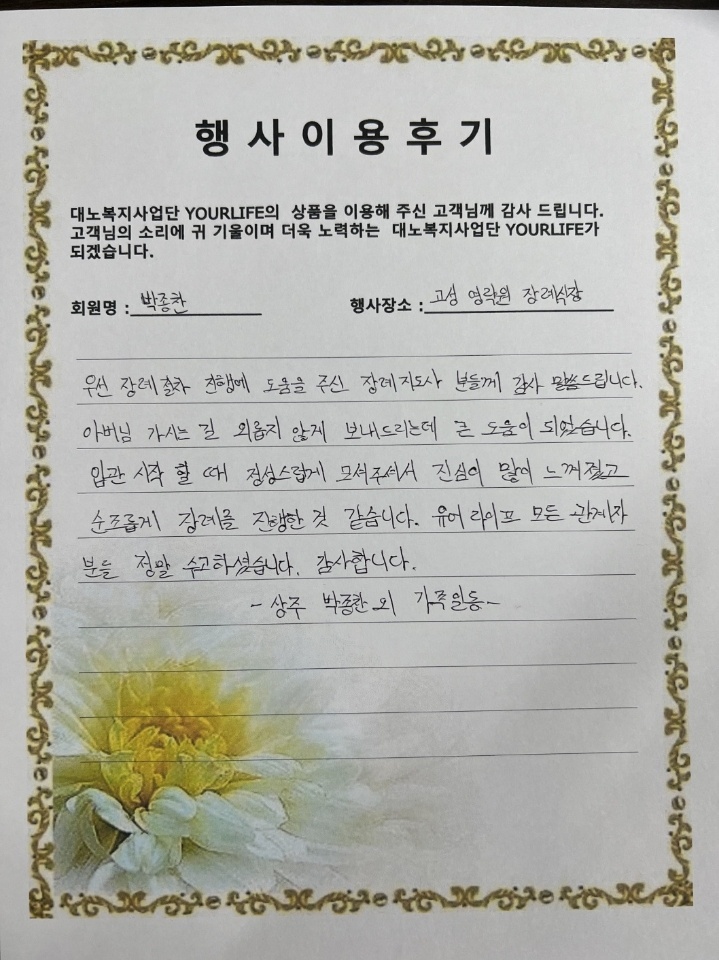 행사이용후기
대노복지사업단 YOURLIFE의 상품을 이용해 주신 고객님께 감사 드립니다.
고객님의 소리에 귀 기울이며 더욱 노력하는 대노복지사업단 YOURLIFE가
되겠습니다.
회원명 : 박종찬 행사장소 : 고성 영락원 장례식장
우선 장례절차 진행에 도움을 주신 장례지도사 분들께 감사 말씀드립니다.
아버님 가시는 길 외롭지 않게 보내드리는데 큰 도움이 되었습니다.
입관 시작 할 때 정성스럽게 모셔주셔서 진심이 많이 느껴졌고
순조롭게 장례를 진행한 것 같습니다. 유어라이프 모든 관계자
분들 정말 수고하셨습니다. 감사합니다.
- 상주 박종찬 외 가족일동 -